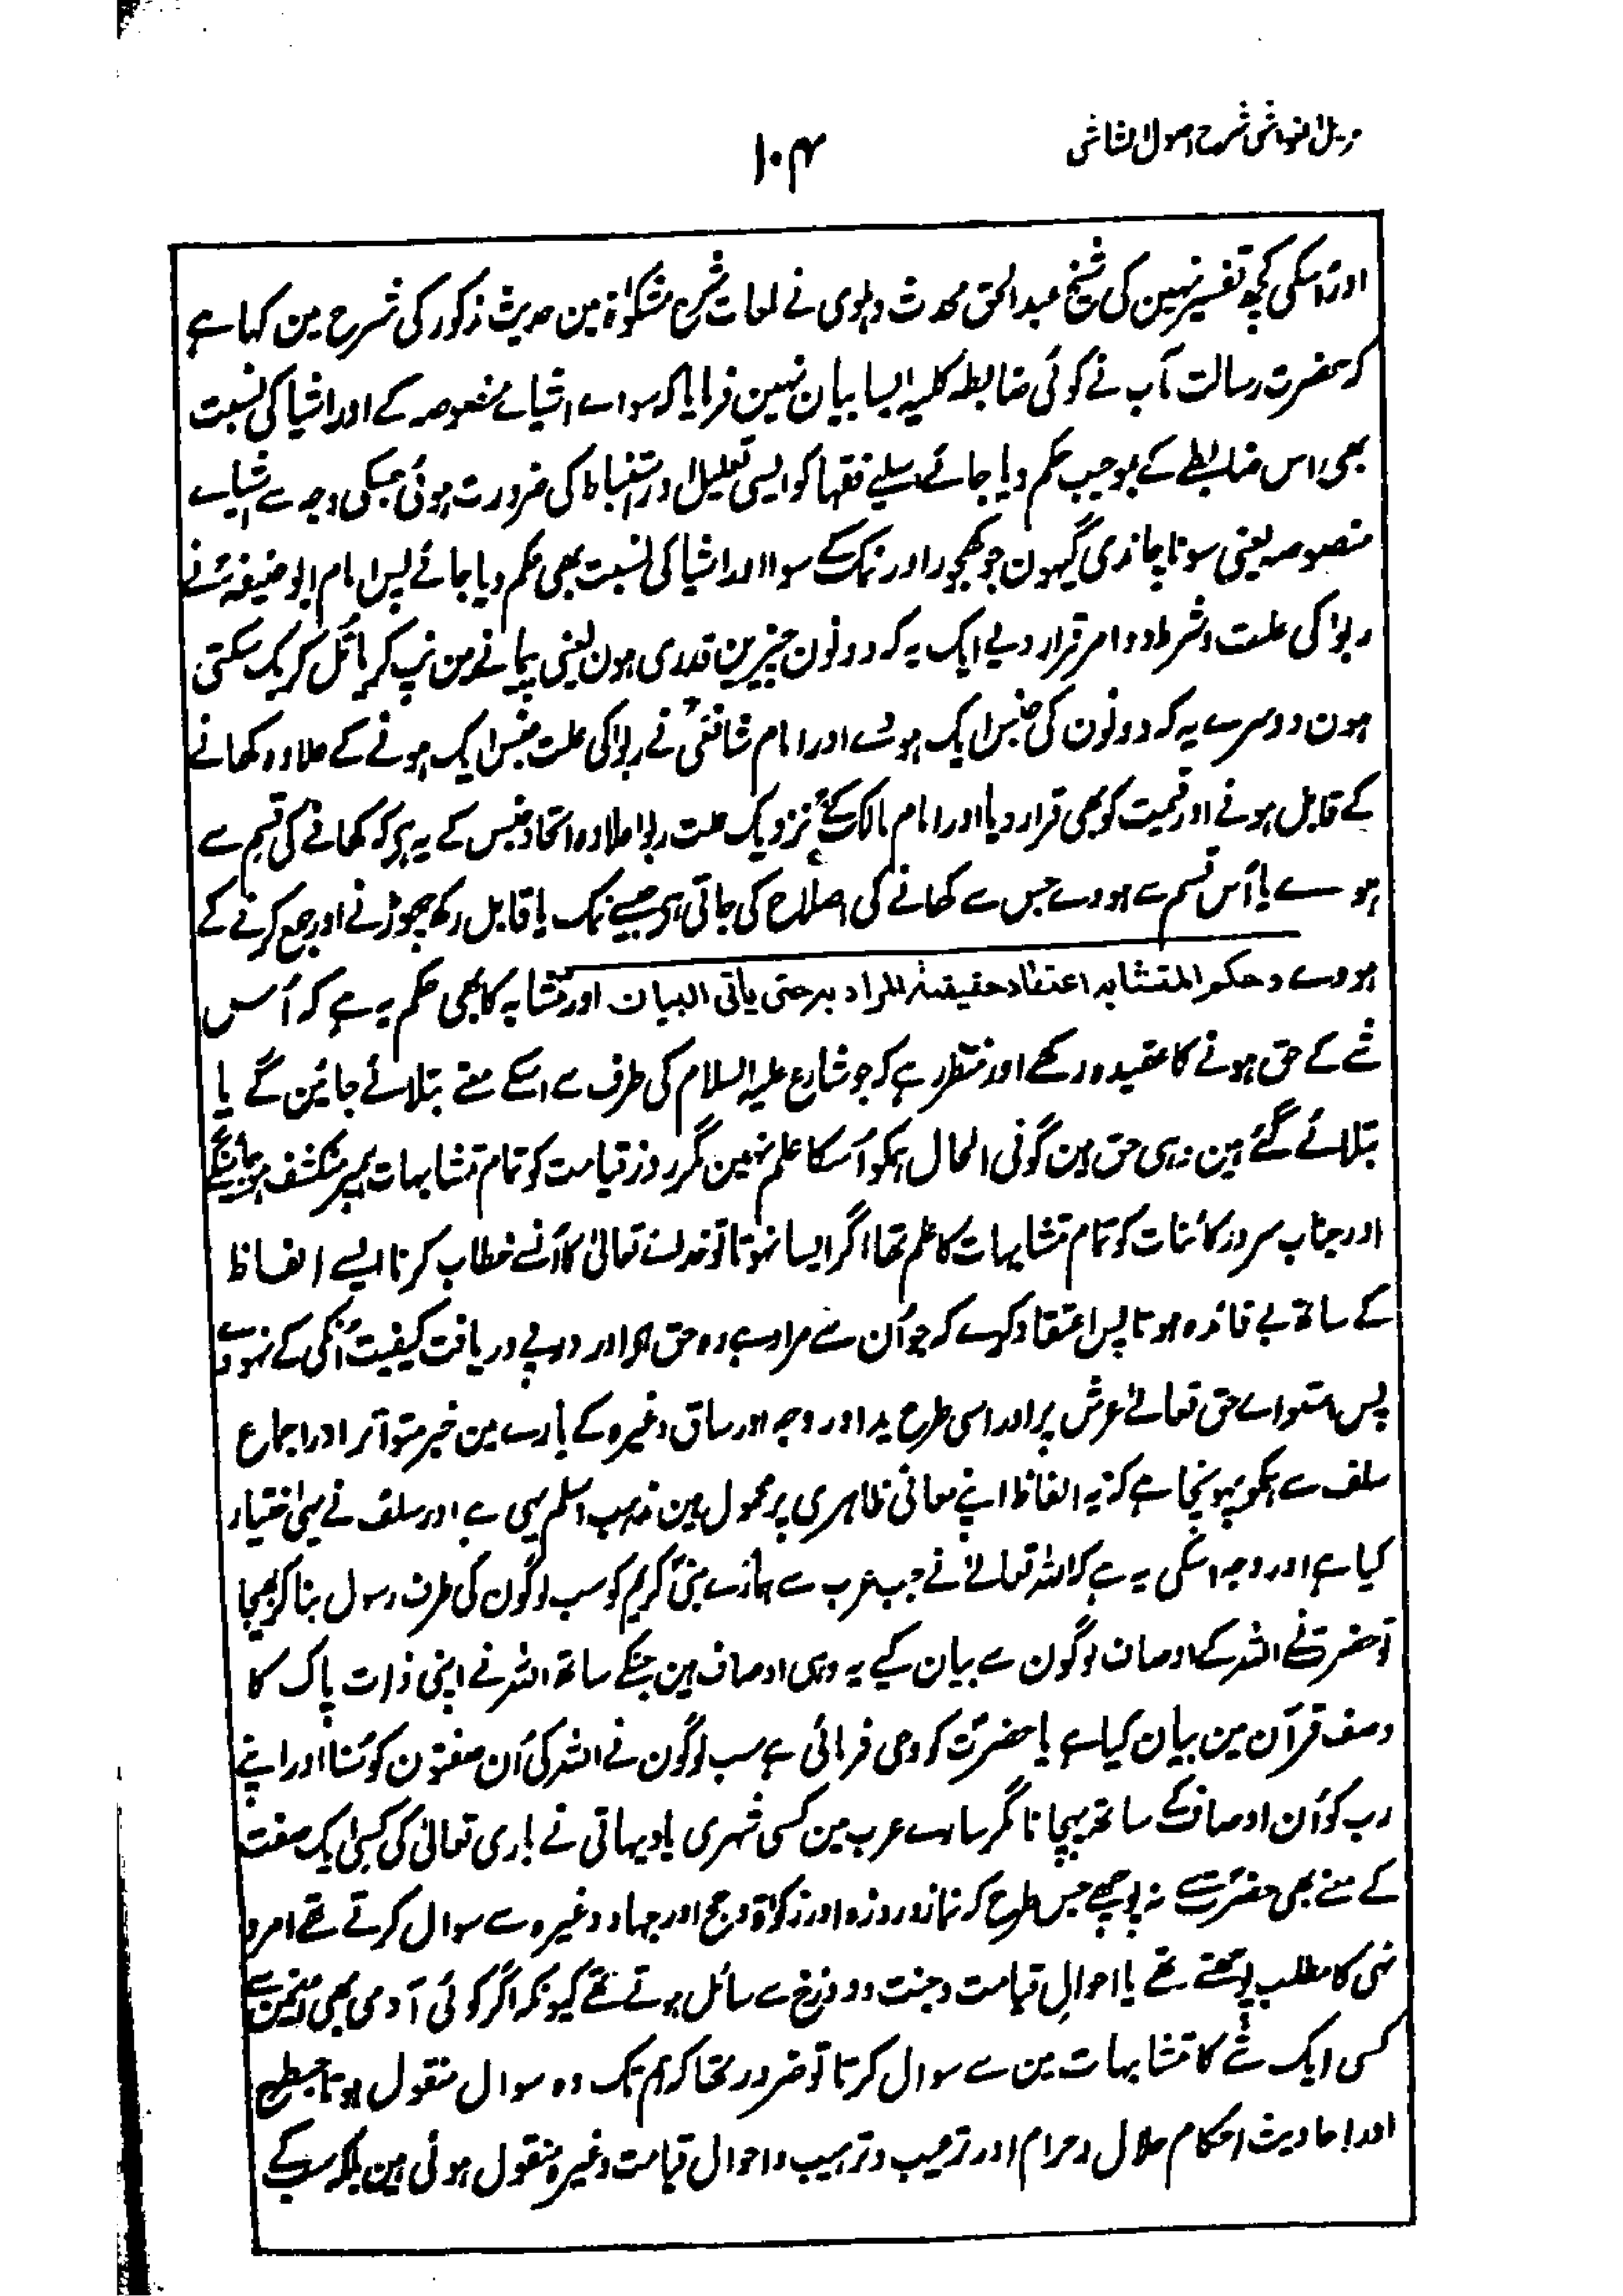 مزیل الغواشی شرح اصول الشاشی
۱۰۴
اور اسکی کچھ تفسیر نہین کی شیخ عبدالحق محدث دہلوی نے لمعات شرح مشکوٰۃ مین حدیث مذکور کی شرح مین کہا ہے
کہ حضرت رسالت مآب نے کوئی ضابطہ کلیہ ایسا بیان نہین فرمایا کہ سواے اشیاے منصوصہ کے اور اشیا کی نسبت
بھی اس ضابطے کے بموجب حکم دیا جائے اسلیے فقہا کو ایسی تعلیل اور استنباط کی ضرورت ہوئی جسکی وجہ سے اشیاے
منصوصہ یعنی سونا چاندی گیہون جو کھجور اور نمک کے سوا اور اشیا کی نسبت بھی حکم دیا جائے پس امام ابو حنیفہؒ نے
ربوٰا کی علت و شرط دو امر قرار دیے ایک یہ کہ دونون چیزین قدری ہون یعنی پیمانے مین نپ کر یا تُل کر بک سکتی
ہون دوسرے یہ کہ دونون کی جنس ایک ہووے اور امام شافعیؒ نے ربوٰا کی علت جنس ایک ہونے کے علاوہ کھانے
کے قابل ہونے اور ثمیت کو بھی قرار دیا اور امام مالکؒ کے نزدیک علت ربوٰا علاوہ اتحاد جنس کے یہ ہر کہ کھانے کی قسم سے
ہووے یا اُس قسم سے ہووے جس سے کھانے کی اصلاح کی جاتی ہی جیسے نمک یا قابل رکھ چھوڑنے اور جمع کرنے کے
ہووے و حکم المتشابہ اعتقاد حقیقۃ المراد بہ حتی یاتی البیان اور متشابہ کا بھی حکم یہ ہے کہ اُس
شے کے حق ہونے کا عقیدہ رکھے اور منتظر رہے کہ جو شارع علیہ السلام کی طرف سے اسکے معنے بتلائے جائین گے یا
بتلائے گئے ہین وہی حق ہین گو فی الحال ہمکو اُسکا علم نہین مگر روز قیامت کو تمام متشابہات ہمپر منکشف ہوجائینگے
اور جناب سرور کائنات کو تمام متشابہات کا علم تھا اگر ایسا نہوتا تو خداے تعالیٰ کا اُنسے خطاب کرنا ایسے الفاظ
کے ساتھ بے فائدہ ہوتا پس اعتقاد کرے کہ جو اُن سے مراد ہے وہ حق ہی اور درپے دریافت کیفیت اُنکی کے نہووے
پس استواے حق تعالےٰ عرش پر اور اسی طرح ید اور وجہ اور ساق وغیرہ کے بارے مین خبر متواتر اور اجماع
سلف سے ہمکو پہونچا ہے کہ یہ الفاظ اپنے معانی ظاہری پر محمول ہین مذہب اسلم یہی ہے اور سلف نے یہی اختیار
کیا ہے اور وجہ اسکی یہ ہے کہ اللہ تعالےٰ نے جب عرب سے ہمارے نبی کریم کو سب لوگون کی طرف رسول بنا کر بھیجا
تو حضرتؐ نے اللہ کے اوصاف لوگون سے بیان کیے یہ وہی اوصاف ہین جنکے ساتھ اللہ نے اپنی ذات پاک کا
وصف قرآن مین بیان کیا ہے یا حضرتؐ کو وحی فرمائی ہے سب لوگون نے اللہ کی اُن صفتون کو سُنا اور اپنے
رب کو اُن اوصاف کے ساتھ پہچانا مگر سارے عرب مین کسی شہری یا دیہاتی نے باری تعالیٰ کی کسی ایک صفت
کے معنے بھی حضرتؐ سے نہ پوچھے جس طرح کہ نماز و روزہ اور زکوٰۃ و حج اور جہاد وغیرہ سے سوال کرتے تھے امر و
نہی کا مطلب پوچھتے تھے یا احوالِ قیامت و جنت و دوزخ سے سائل ہوتے تھے کیونکہ اگر کوئی آدمی بھی انمین سے
کسی ایک شے کا متشابہات مین سے سوال کرتا تو ضرور تھا کہ ہم تک وہ سوال منقول ہوتا جسطرح
اور احادیث احکام حلال و حرام اور ترغیب و ترہیب و احوال قیامت وغیرہ منقول ہوئی ہین بلکہ سب کے